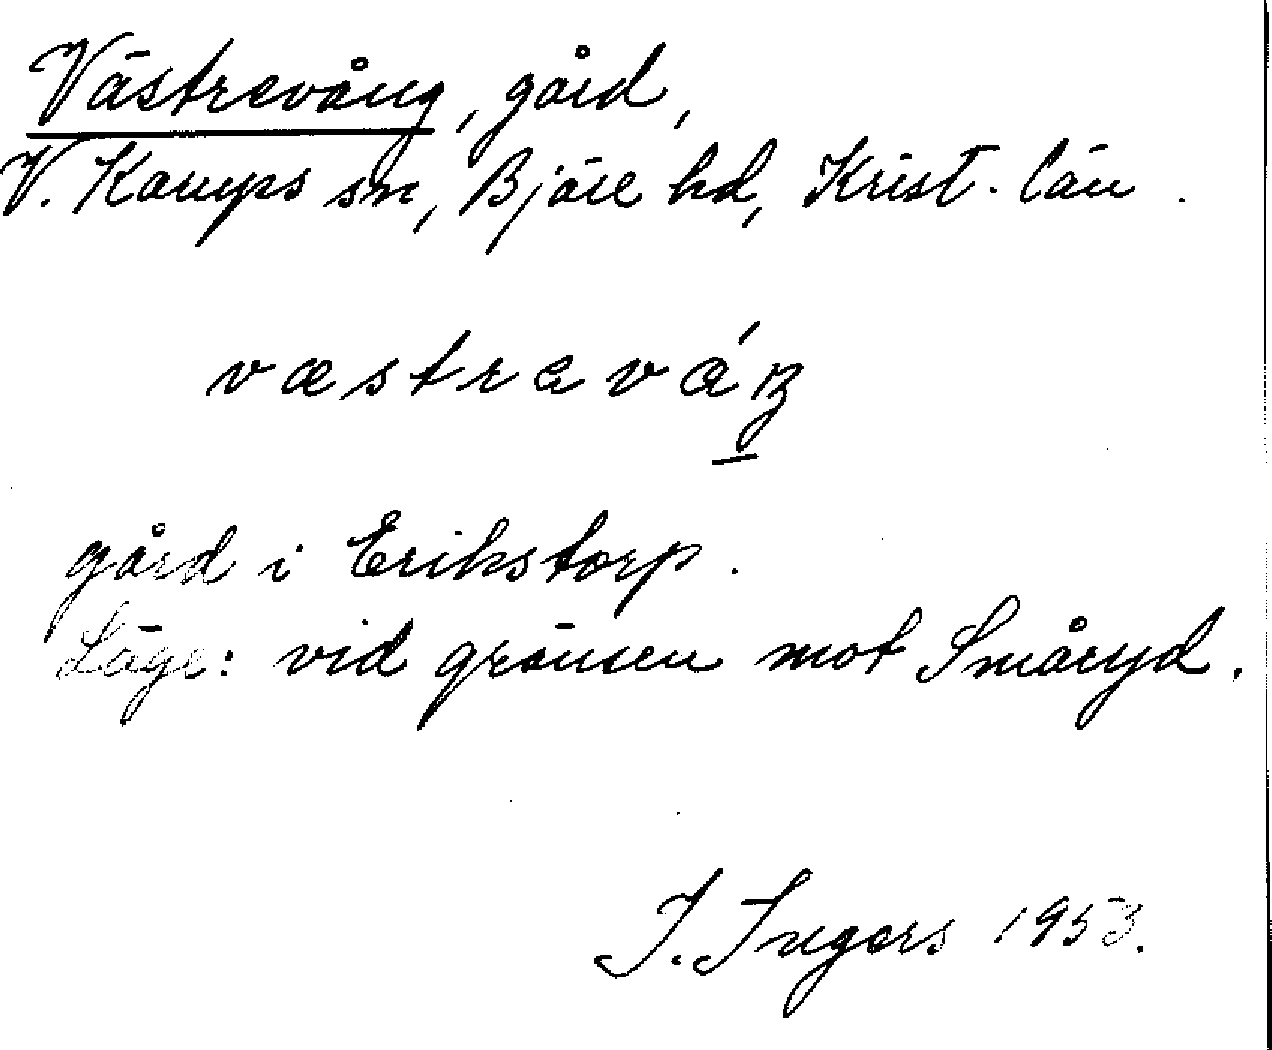 Västrevång, gård,
V. Karups sn, Bjäre hd, Krist. län.
gård i Erikstorp.
Läge: vid gränsen mot Småryd.
I. Ingers 1953.